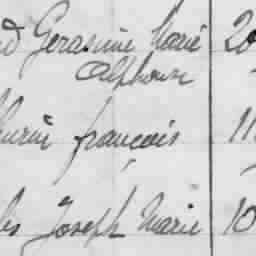 d Gerasime Marie 20
Alphonse
hurin françois 11
les Joseph Marie 10